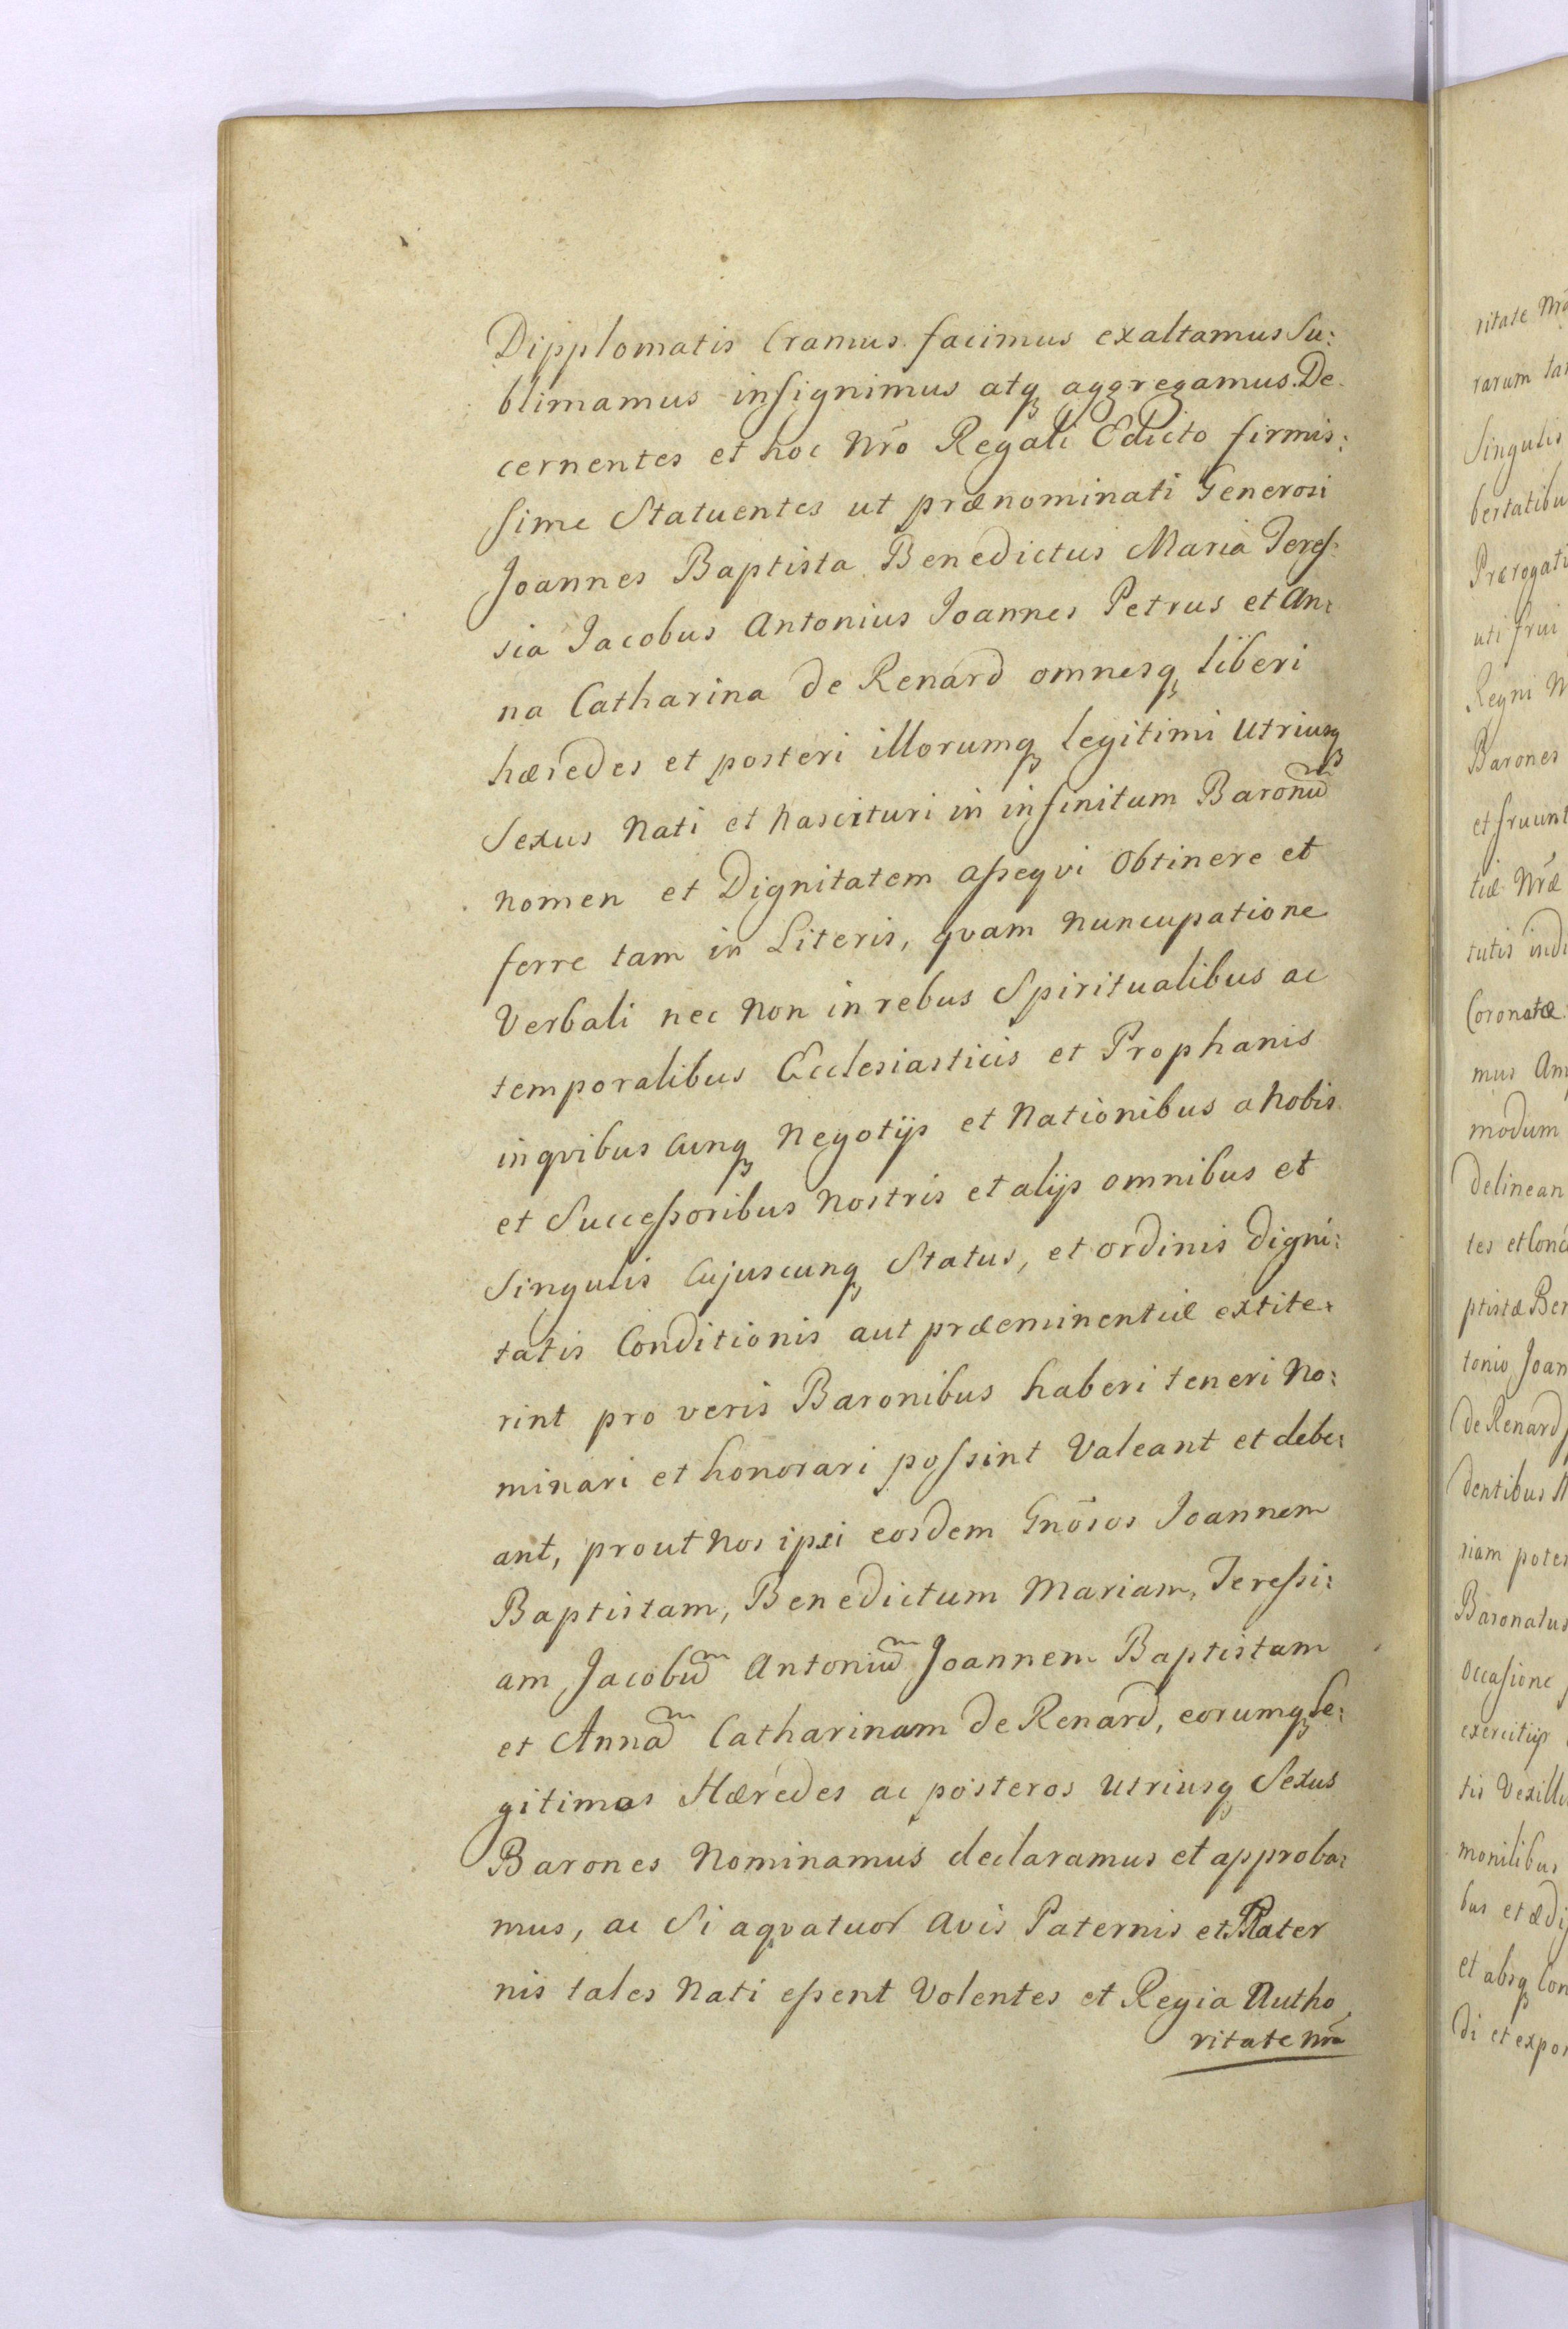 Dipplomatis Cramus facimus exaltamus Su:
blimamus insignimus atq₃ aggregamus. De
cernentes et hoc Nr̃o Regali Edicto firmis:
sime Statuentes ut prænominati Generosi
Joannes Baptista Benedictus Maria Teres:
sia Jacobus Antonius Joannes Petrus et An:
na Catharina de Renard omnesq₃ liberi
hæredes et posteri illorumq₃ legitimi Utriusq₃
Sexus Nati et Nascituri in infinitum Baronũ
Nomen et Dignitatem assequi Obtinere et
ferre tam in Literis, quam Nuncupatione
Verbali nec Non in rebus Spiritualibus ac
temporalibus Ecclesiasticis et Prophanis
inquibus cunq₃ Negotijs et Nationibus a Nobis
et Successoribus Nostris et alijs omnibus et
Singulis Cujuscunq₃ Status, et ordinis digni:
tatis Conditionis aut præeminentiæ extite:
rint pro veris Baronibus haberi teneri No:
minari et honorari possint Valeant et debe:
ant, prout Nos ipsi eosdem Gnõsos Joannem
Baptistam, Benedictum Mariam, Teressi:
am Jacobũ Antoniũ Joannem Baptistam
et Annã Catharinam de Renard, eorumq₃ Le:
gitimos Hæredes ac posteros Utriusq₃ Sexus
Barones Nominamus declaramus et approba:
mus, ac Si aquatuor Avis Paternis et Mater
nis tales Nati essent Volentes et Regia Autho
ritate Nrã
ritate Nrã
rarum
Singulis
bertatibu
Prærogati
uti frui
Regni N
Barones
et fruunt
tiæ Nr̃æ
tutis indi
Coronatæ
mus
modum
delinean
tes et
ptistæ Ber
tonio Joan
de Renard
dentibus
riam poter
Baronatus
Occasione
exercitijs
tis Vexill
monilibus
bus et ædi
et absq₃ Con
di et expo